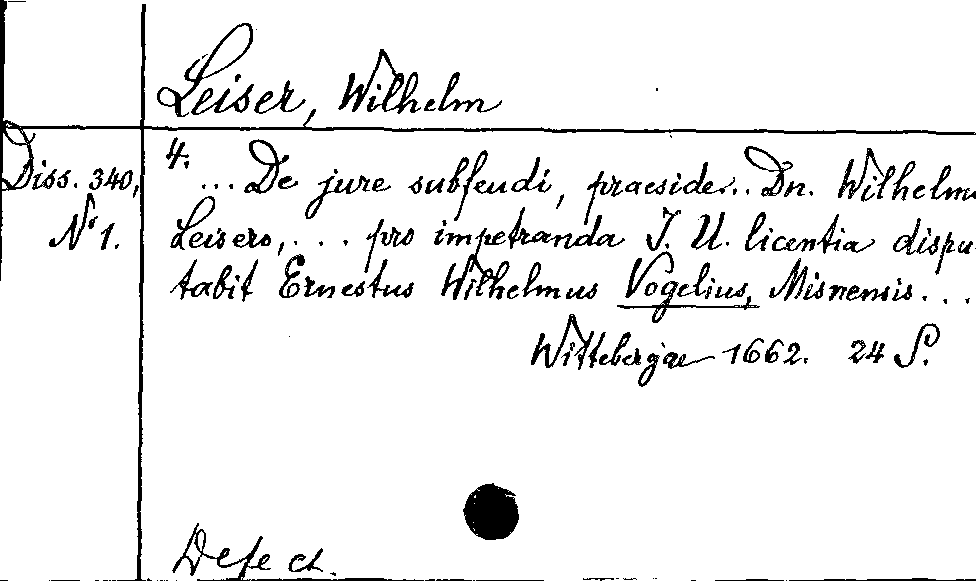 Leiser, Wilhelm
Diss. 340,
No 1.
4. ... De jure subfeudi, praeside... Dn. Wilhelmo
Leisero, ... pro impetranda J. U. licentia dispu
tabit Ernestus Wilhelmus Vogelius, Misnensis ...
Wittebergae 1662. 24 S.
Defect.